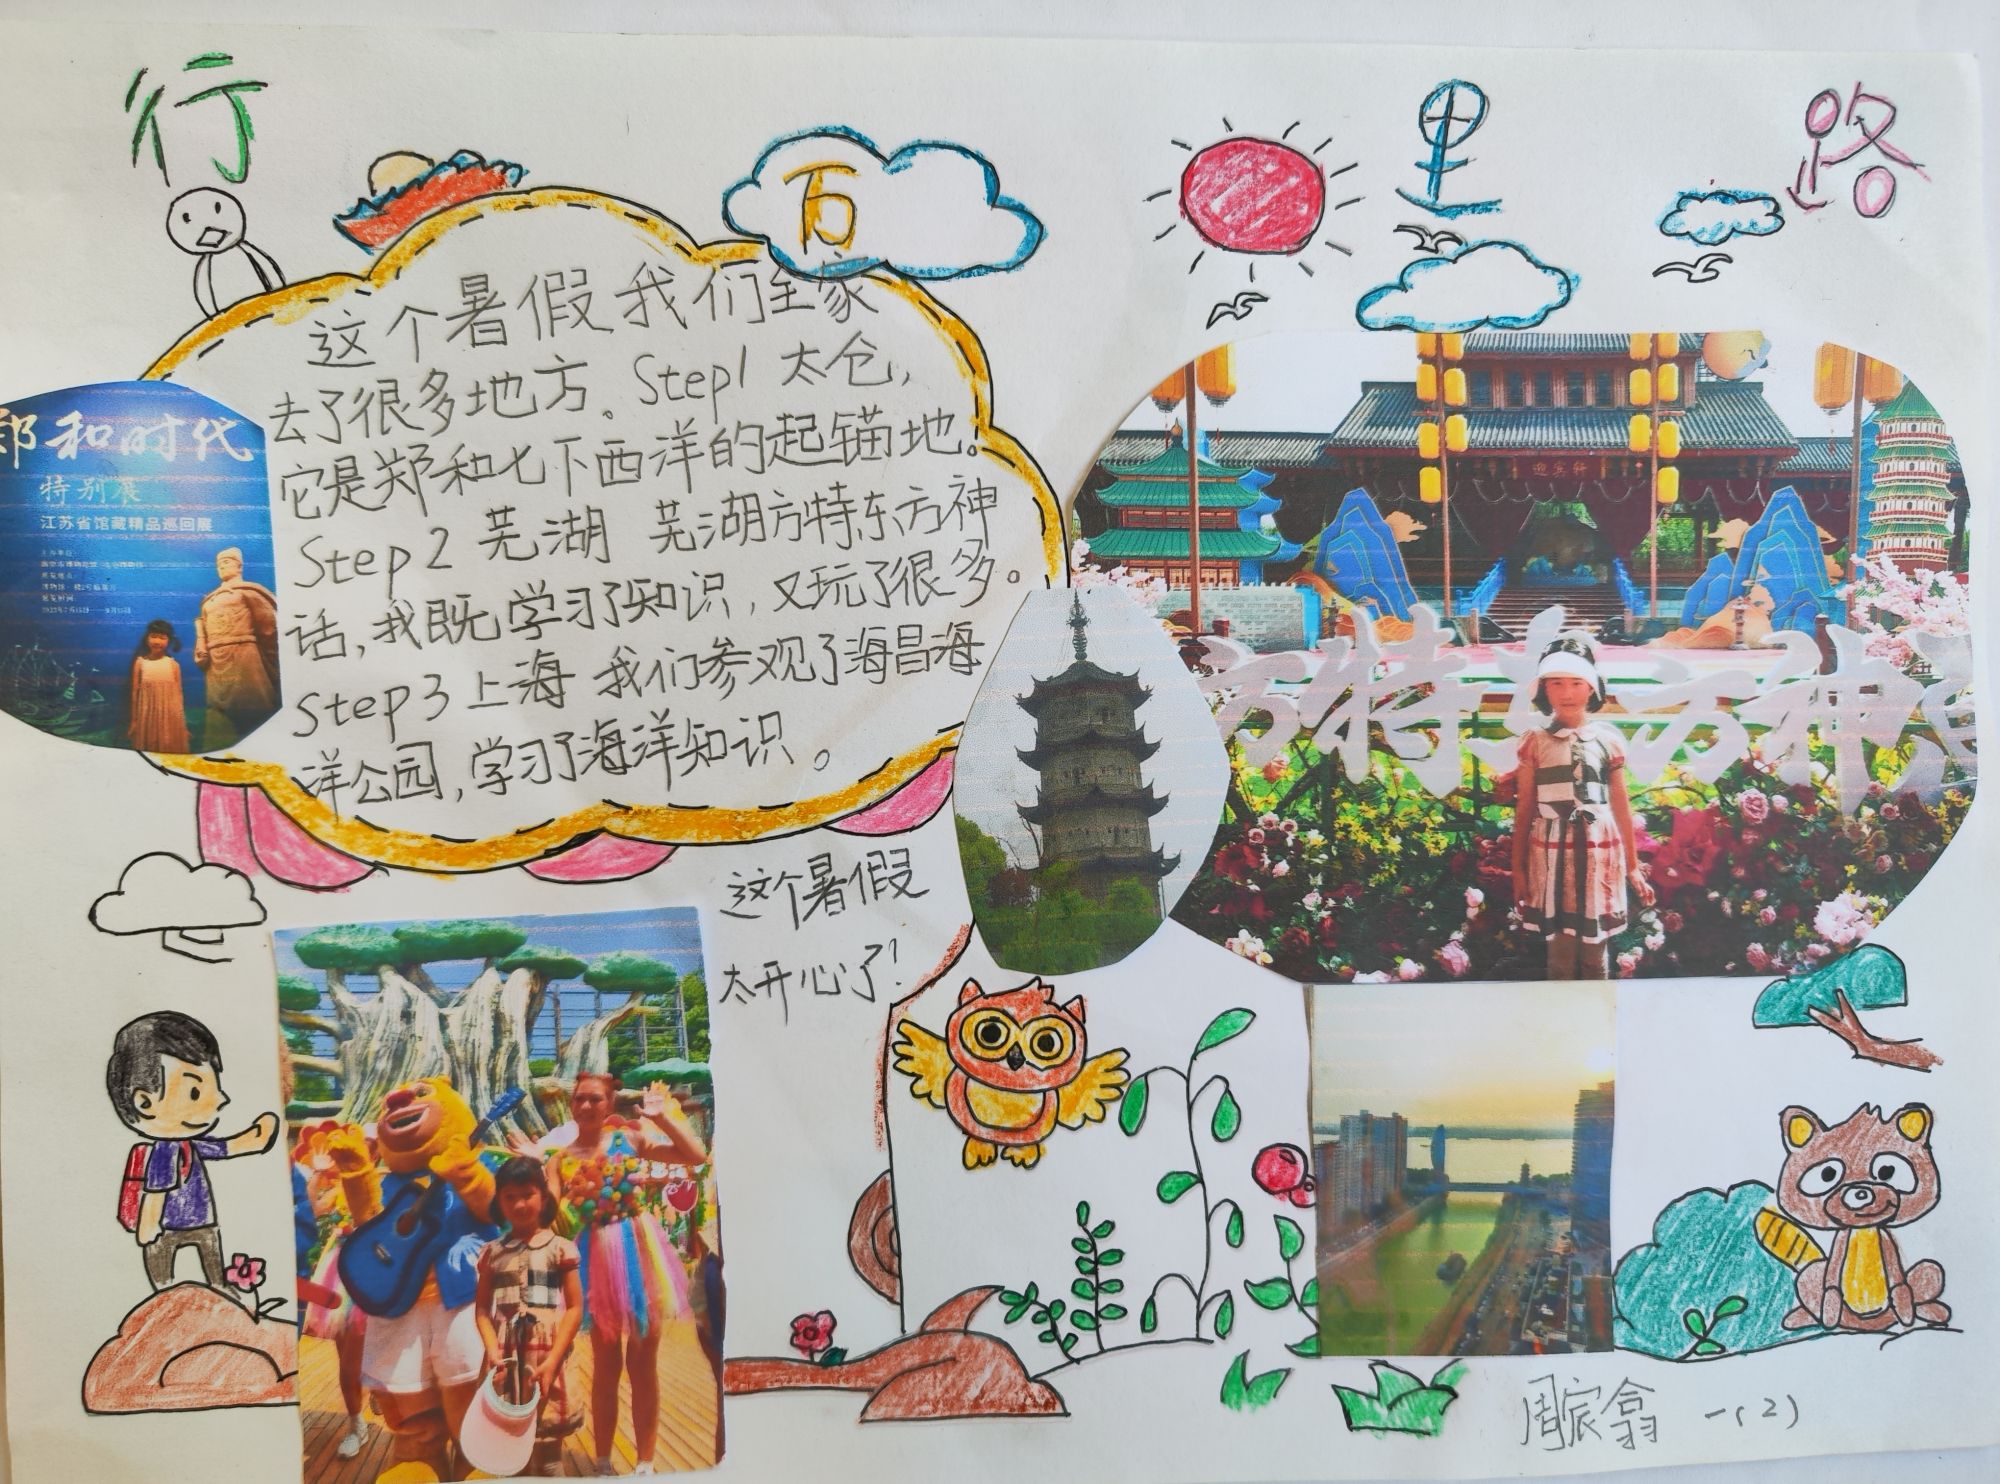 行
万
里
路
这个暑假我们全家
去了很多地方。Step1 太仓,
它是郑和七下西洋的起锚地!
Step2 芜湖 芜湖方特东方神
话,我既学习了知识,又玩了很多。
Step3 上海 我们参观了海昌海
洋公园,学习了海洋知识。
郑和时代
特别展
江苏省馆藏精品巡回展
迎宾轩
方特东方神
这个暑假
太开心了!
周宸翕 一(2)